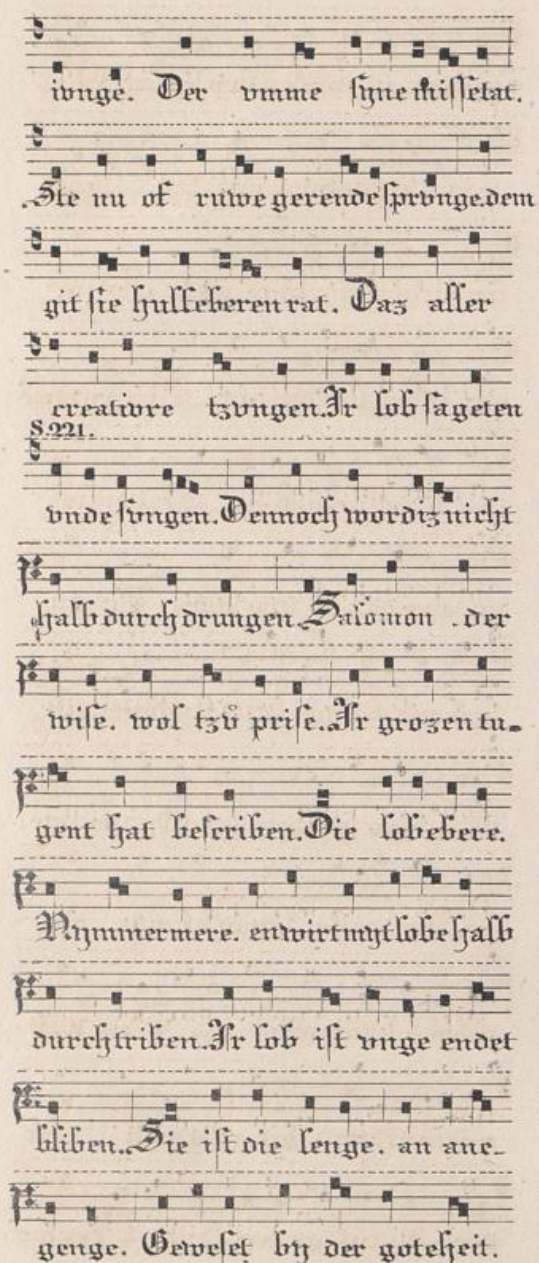 ivnge. Der vmme syne missetat.
Ste nu of ruwe gerende sprvnge. dem
git sie hulfeberen rat. Daz aller
creativre tzvngen. Ir lob sageten
S.221.
vnde svngen. Dennoch wordiz nicht
halb durch drungen. Salomon . der
wise. wol tzů prise. Ir grozen tu-
gent hat bescriben. Die lobebere.
Nymmermere. enwirt myt lobe halb
durchtriben. Ir lob ist vnge endet
bliben. Sie ist die lenge. an ane-
genge. Geweset by der goteheit.